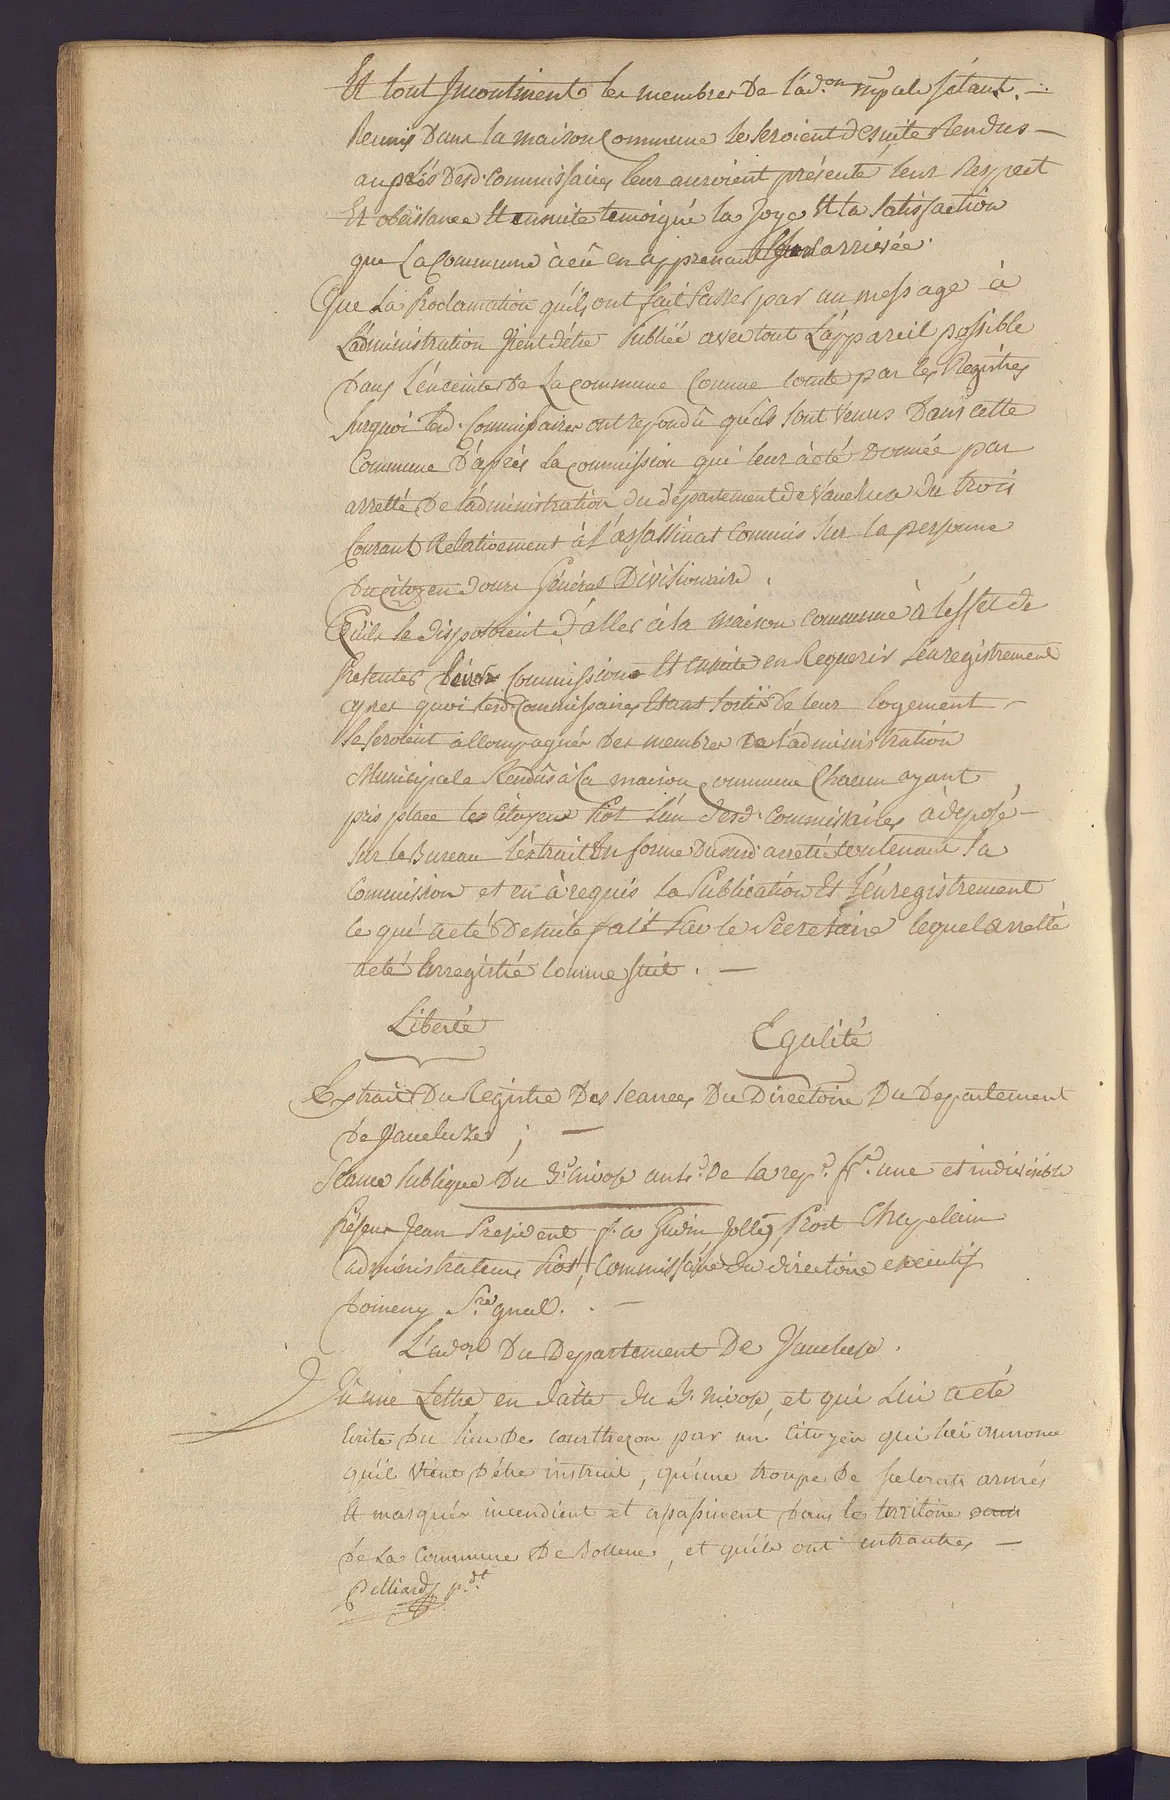 Et tout Incontinent les membres De l'ad.on mpale s'étant. —
Reunis Dans la maison Commune se seroient desuite Rendus —
auprès Desd. Commissaires leur auroient présenté leur Respect
Et obéissance Et ensuite temoigné la Joye Et la satisfaction
que La Commune à eû en apprenant leur arrivée.
Que La Proclamation qu'ils ont fait Passer par un message à
L'administration Vient d'être Publiée avec tout L'appareil possible
Dans L'enceinte De La Commune Comme Conste par les Registres
Surquoi lesd. Commissaires ont repondû qu'ils sont Venus Dans cette
Commune D'après la commission qui leur à été Donnée par
arretté De l'administration du département de Vaucluse Du trois
Courant Relativement à L'assassinat Commis Sur la personne
Du citoyen Doux Général Divisionaire.
Qu'ils se disposoient d'aller à la maison commune à l'effet de
Présenter leur Commission Et ensuite en Requerir L'enregistrement
après quoi lesd. Commissaires Etant Sortis de leur logement —
se seroient accompagnés Des membres De l'administration
Municipale Rendûs à la maison Commune Chacun ayant
pris place le Citoyen Piot L'un desd. Commissaires à déposé —
Sur le Bureau L'extrait En forme Dusud. arretté Contenant Sa
Commission et en à requis la Publication Et L'énregistrement
ce qui à été Desuite fait Par le Secretaire lequel arretté
a été Enregistré Comme suit. —
Liberté Egalité
Extrait Du Registre Des Seances Du Directoire Du Departement
De Vaucluse; —
Seance Publique Du 3.e nivose an 5.e De la rep.e fr.e une et indivisible
Présens Jean President, Guerin, Jollet, Prost Chapelain
administrateurs Piot, Commissaire du directoire executif
Domeny S.re gnal. —
L'ad.on Du Departement De Vaucluse.
Vû une Lettre en datte du 3. Nivose, et qui Lui à été
Ecrite Du lieu De Courthezon par un Citoyen qui lui annonce
qu'il Vient D'être instruit, qu'une troupe De scelerats armés
Et masqués incendient et assassinent Dans le territoire
De La Commune De Bollene, et qu'ils ont entrautres —
Pelliard p.dt